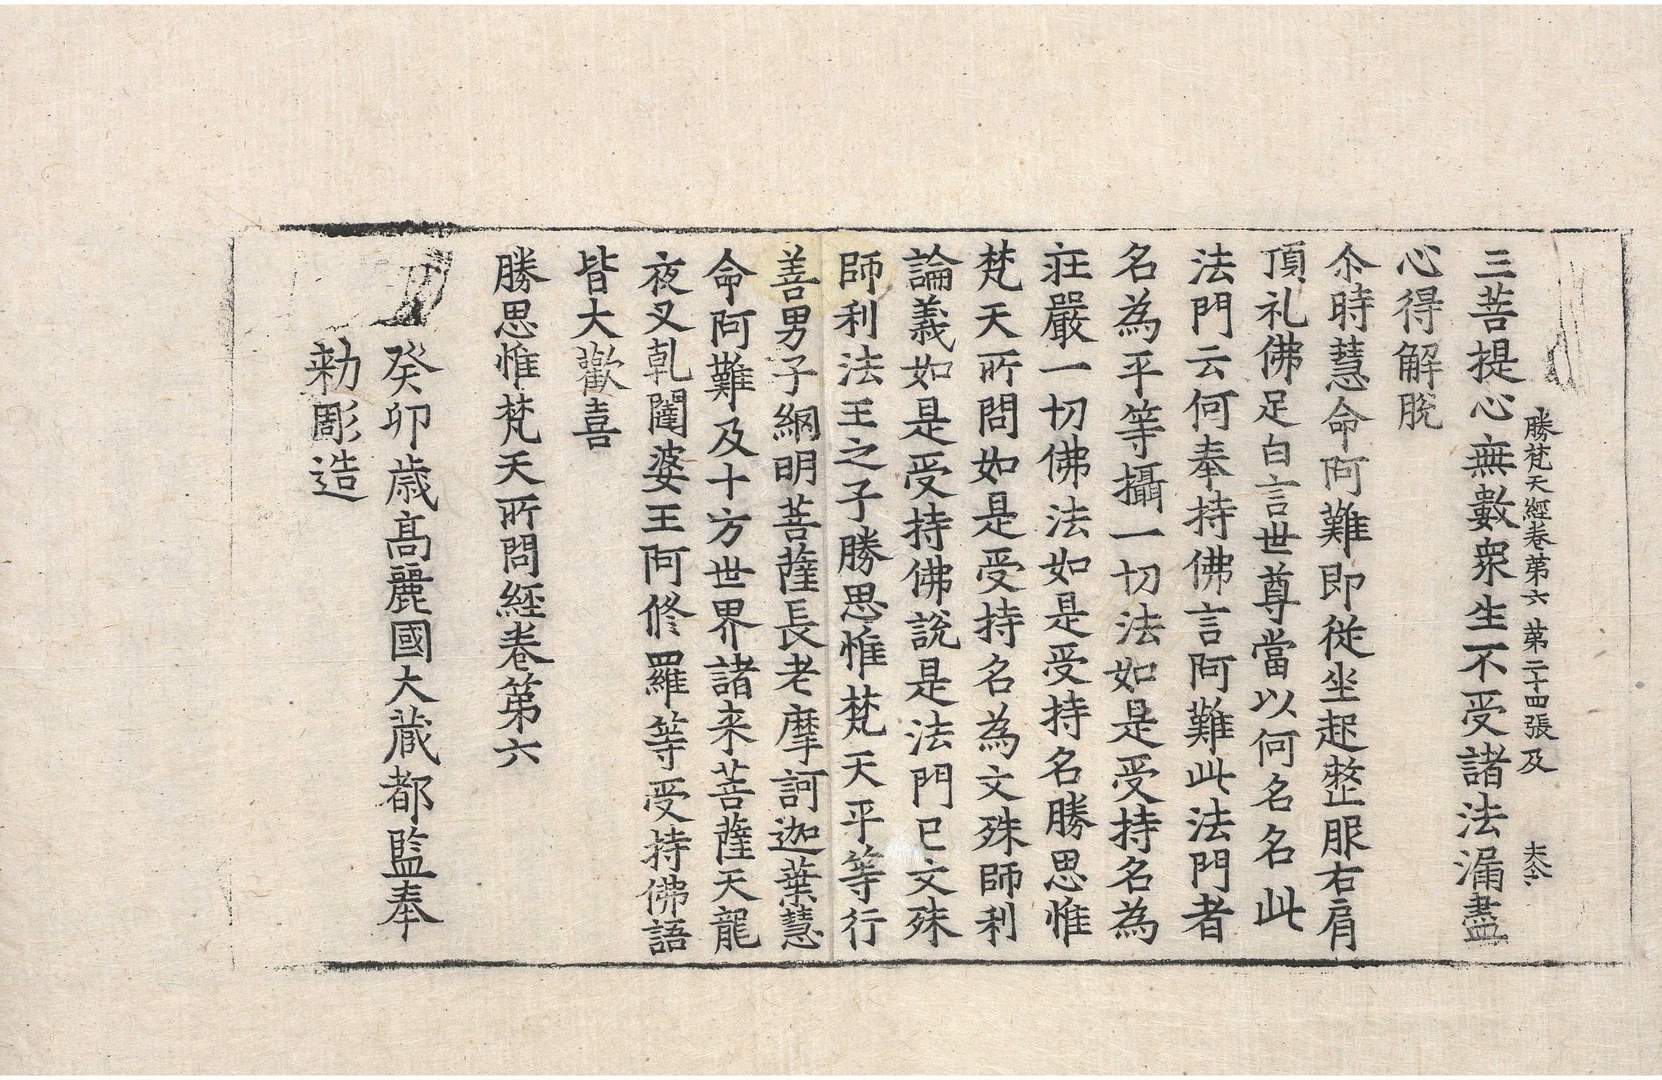 勝梵天經卷第六 第二十四張 及
三菩提心無數衆生不受諸法漏盡
心得解脫
尒時慧命阿難即從坐起整服右肩
頂礼佛足白言世尊當以何名名此
法門云何奉持佛言阿難此法門者
名為平等攝一切法如是受持名為
莊嚴一切佛法如是受持名勝思惟
梵天所問如是受持名為文殊師利
論義如是受持佛說是法門已文殊
師利法王之子勝思惟梵天平等行
善男子網明菩薩長老摩訶迦葉慧
命阿難及十方世界諸来菩薩天龍
夜叉乹闥婆王阿修羅等受持佛語
皆大歡喜
勝思惟梵天所問經卷第六
癸卯歲高麗國大藏都監奉
勑彫造